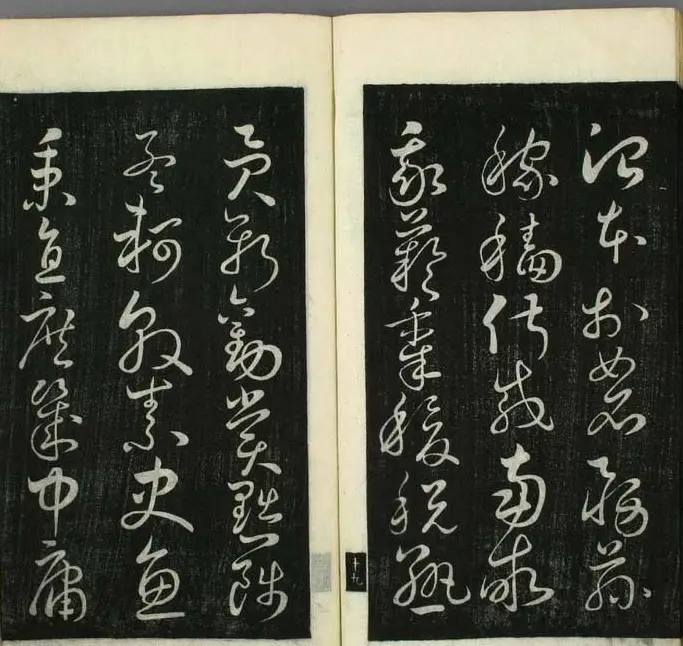 治本於農務茲
稼穡俶載南畝
我藝黍稷稅熟
十九
貢新勸賞黜陟
孟軻敦素史魚
秉直庶幾中庸